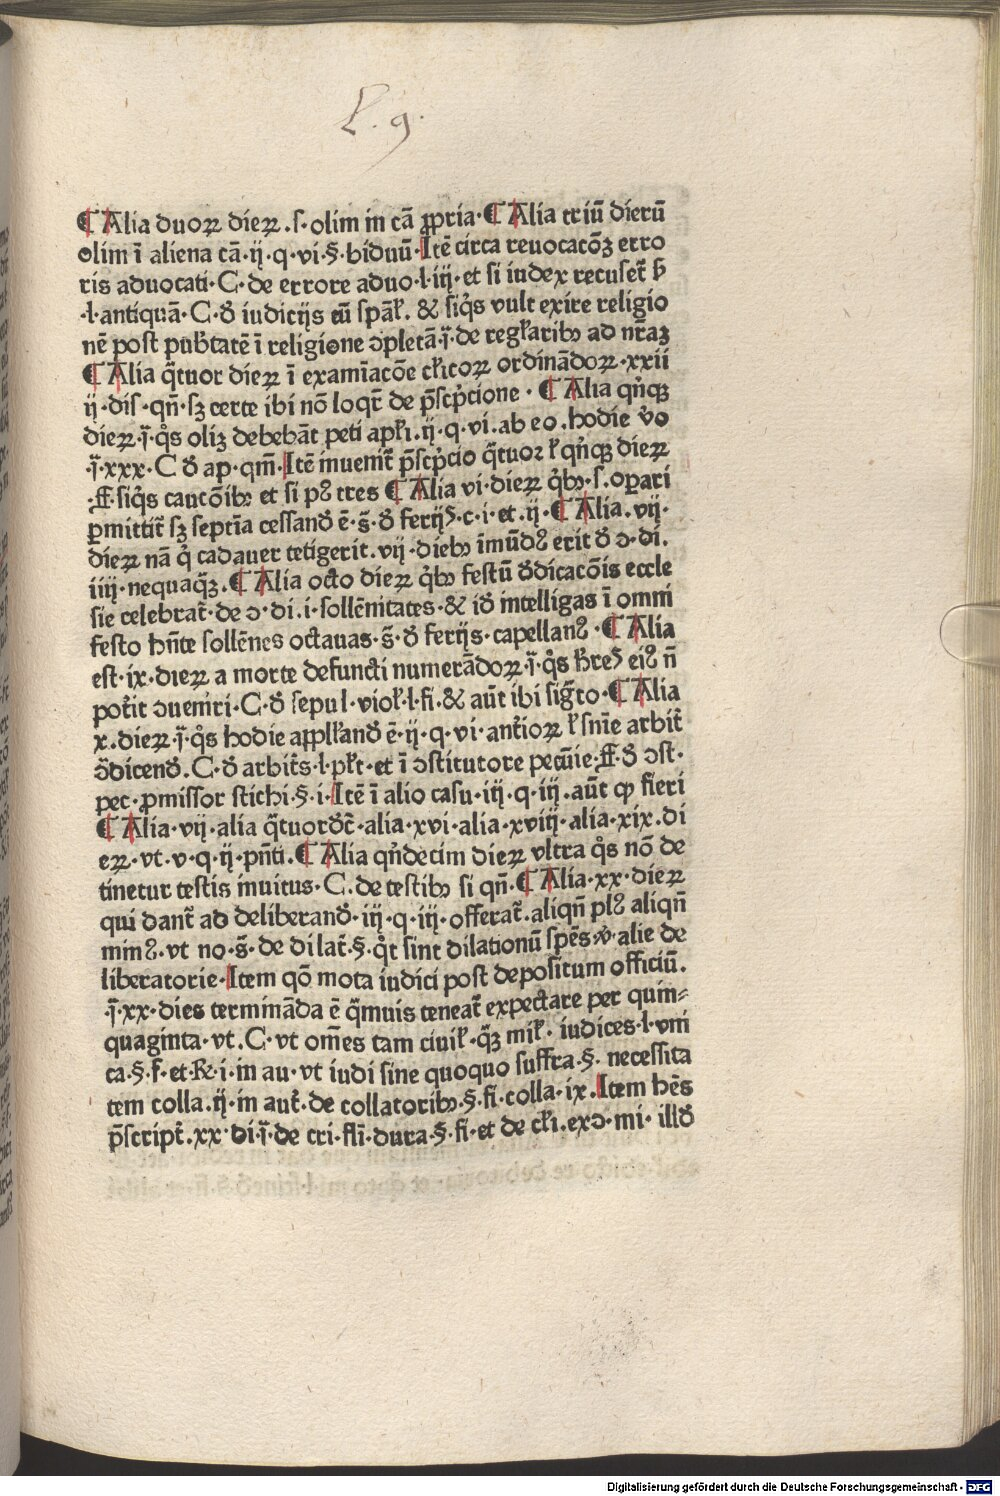 L. 9.
¶ Alia duoꝝ dieꝝ .s· olim in cā ꝓpria· ¶ Alia triū dierū
olim ī aliena cā·ij·q·vi·§·biduū· Itē circa reuocacōꝫ erro
ris aduocati·C·de errore aduo·l·iij·et si iudex recuset̄
·l·antiquā·C·ꝺ̄ iudicijs cū spāł. & siq̇s vult exire religio
nē post pubtatē ī religione ɔpletā·ī·de regłaribꝫ ad nr̄aꝫ
¶ Alia q̄tuor dieꝝ ī examīacōe cłicoꝝ ordinādoꝝ·xxii
ij·dis·qn̄·sꝫ certe ibi nō loqt̄ de p̄scp̍cione· ¶ Alia qn̍qꝫ
dieꝝ·ī·q̊s oliꝫ debebāt peti apłi.ij·q·vi·ab eo·hodie v̊o
·ī·xxx·C ꝺ̄ ap·qm̄· Itē inuemt̄ p̄scp̍cio q̄tuoꝛ ł qn̍qꝫ dieꝝ
·ff·siq̍s caucōibꝫ et si pꝰ tres ¶ Alia vi·dieꝝ q̍bꝫ·s·oꝑari
ꝑmittit̄ sꝫ septīa cessanꝺ̄ ē·s̄·ꝺ̄ ferijs·c·i·et·ij· ¶ Alia·vij·
dieꝝ nā q̍ cadauer tetigerit·vij·diebꝫ īmūdꝰ erit ꝺ̄ ɔ·di.
iiij·nequaq̄ꝫ· ¶ Alia octo dieꝝ q̍bꝫ festū ꝺ̄dicacōis eccle
sie celebrat̄·de ɔ·di·i·sollēnitates·& iꝺ̄ intelligas ī omni
festo hn̄te sollēnes octauas·s̄·ꝺ̄ ferijs·capellanꝰ· ¶ Alia
est·ix·dieꝝ a morte defuncti numerādoꝝ·ī·q̊s hr̄es eiꝰ n̄
pot̄it ɔueniri·C·ꝺ̄ sepul·violˀ·l·fi·& aūt ibi sigr̄to· ¶ Alia
x·dieꝝ·ī·q̊s hodie appłłanꝺ̄ ē·ij·q·vi·ant̄ioꝝ ł sn̄ie arbit̄
ɔ̄dicenꝺ̄·C·ꝺ̄ arbit̄s·l·pł̄t·et ī ɔstitutore pecūie·ff·ꝺ̄ ɔst·
pec·ꝓmissor stichi·§·i· Itē ī alio casu·iij·q·iij·aūt ꝙ fieri
¶ Alia·vij·alia q̄tuorꝺ̄c̄·alia·xvi·alia·xviij·alia·xix·di
eꝝ·vt·v·q·ij·pn̄ti· ¶ Alia qn̍decim dieꝝ vltra q̊s nō de
tinetur testis inuitus·C·de testibꝫ si qn̄· ¶ Alia·xx·dieꝝ
qui dant̄ ad deliberanꝺ̄·iij·q·iij·offerat̄·aliqn̄ plꝰ aliqn̄
minꝰ·vt no·s̄·de dilat̄·§·q̊t sint dilationū spēs v̊·alie de
liberatorie· Item qō mota iudici post depositum officiū.
·ī·xx·dies termināda ē q̄muis teneat̄ expectare per quin⸗
quaginta·vt·C·vt om̄es tam ciuił·q̄ꝫ mił·iudices·l·vni
ca·§·f·et·R·i·in au·vt iudi sine quoquo suffra·§·necessita
tem colla·ij·in aut̄·de collatoribꝫ·§·fi·colla·ix· Item hēs
p̄script̄·xx·di·ī·de cri·fłi·dura·§·fi·et de cłi·exɔ·mi·illꝺ̄
Digitalisierung gefördert durch die Deutsche Forschungsgemeinschaft - DFG